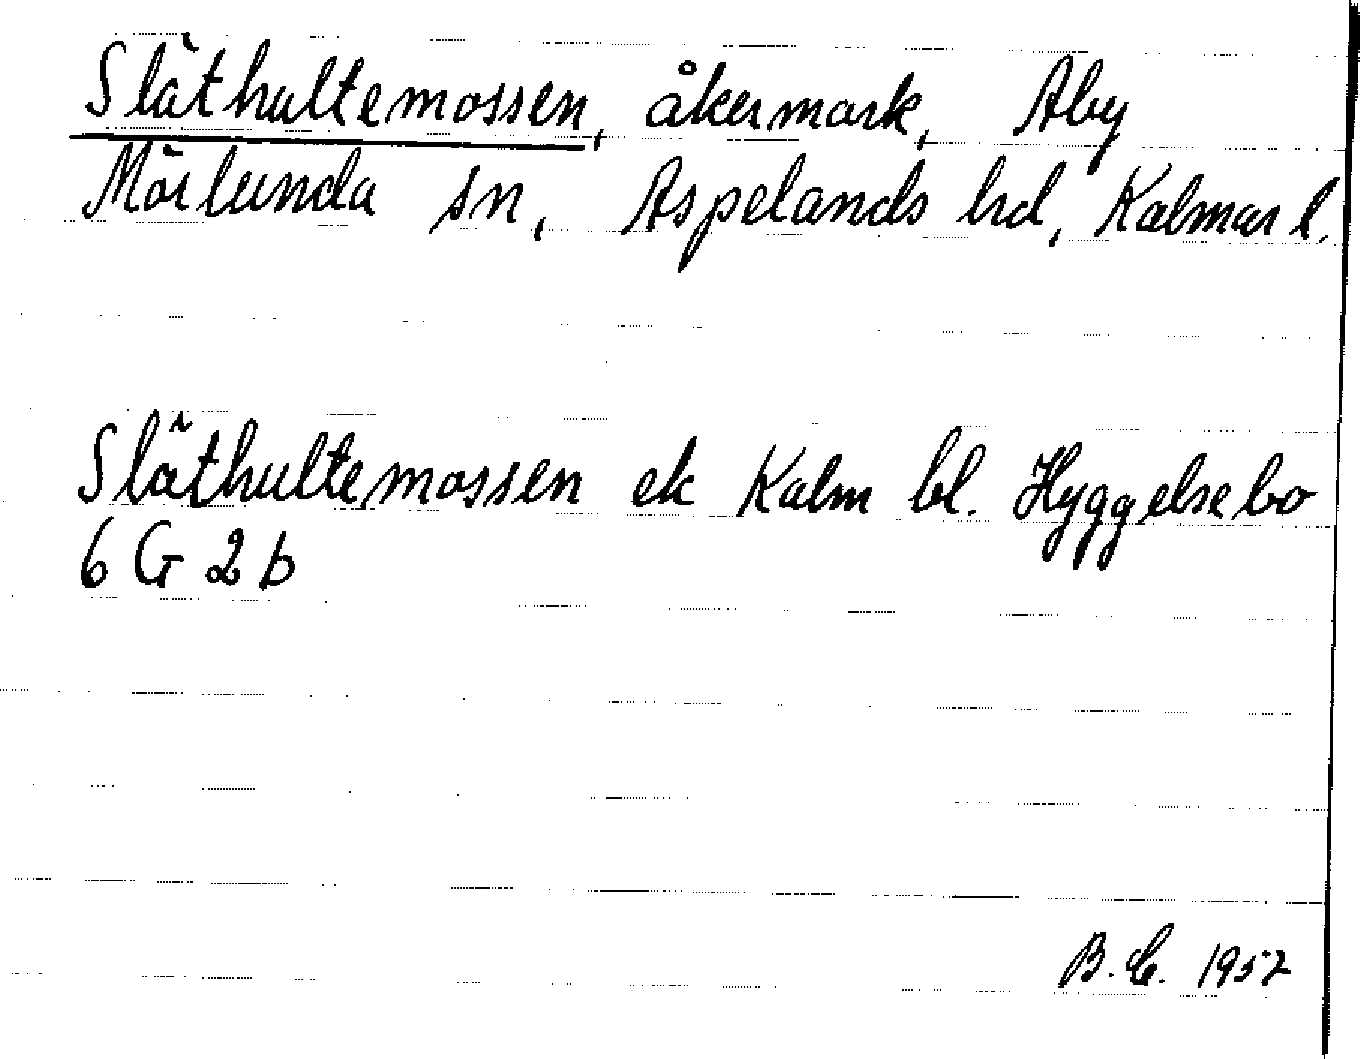 Släthultemossen, åkermark, Åby
Mörlunda sn, Aspelands hd, Kalmar l.
Släthultemossen ek Kalm bl. Hyggelsebo
6 G 2 b
B. E. 1957